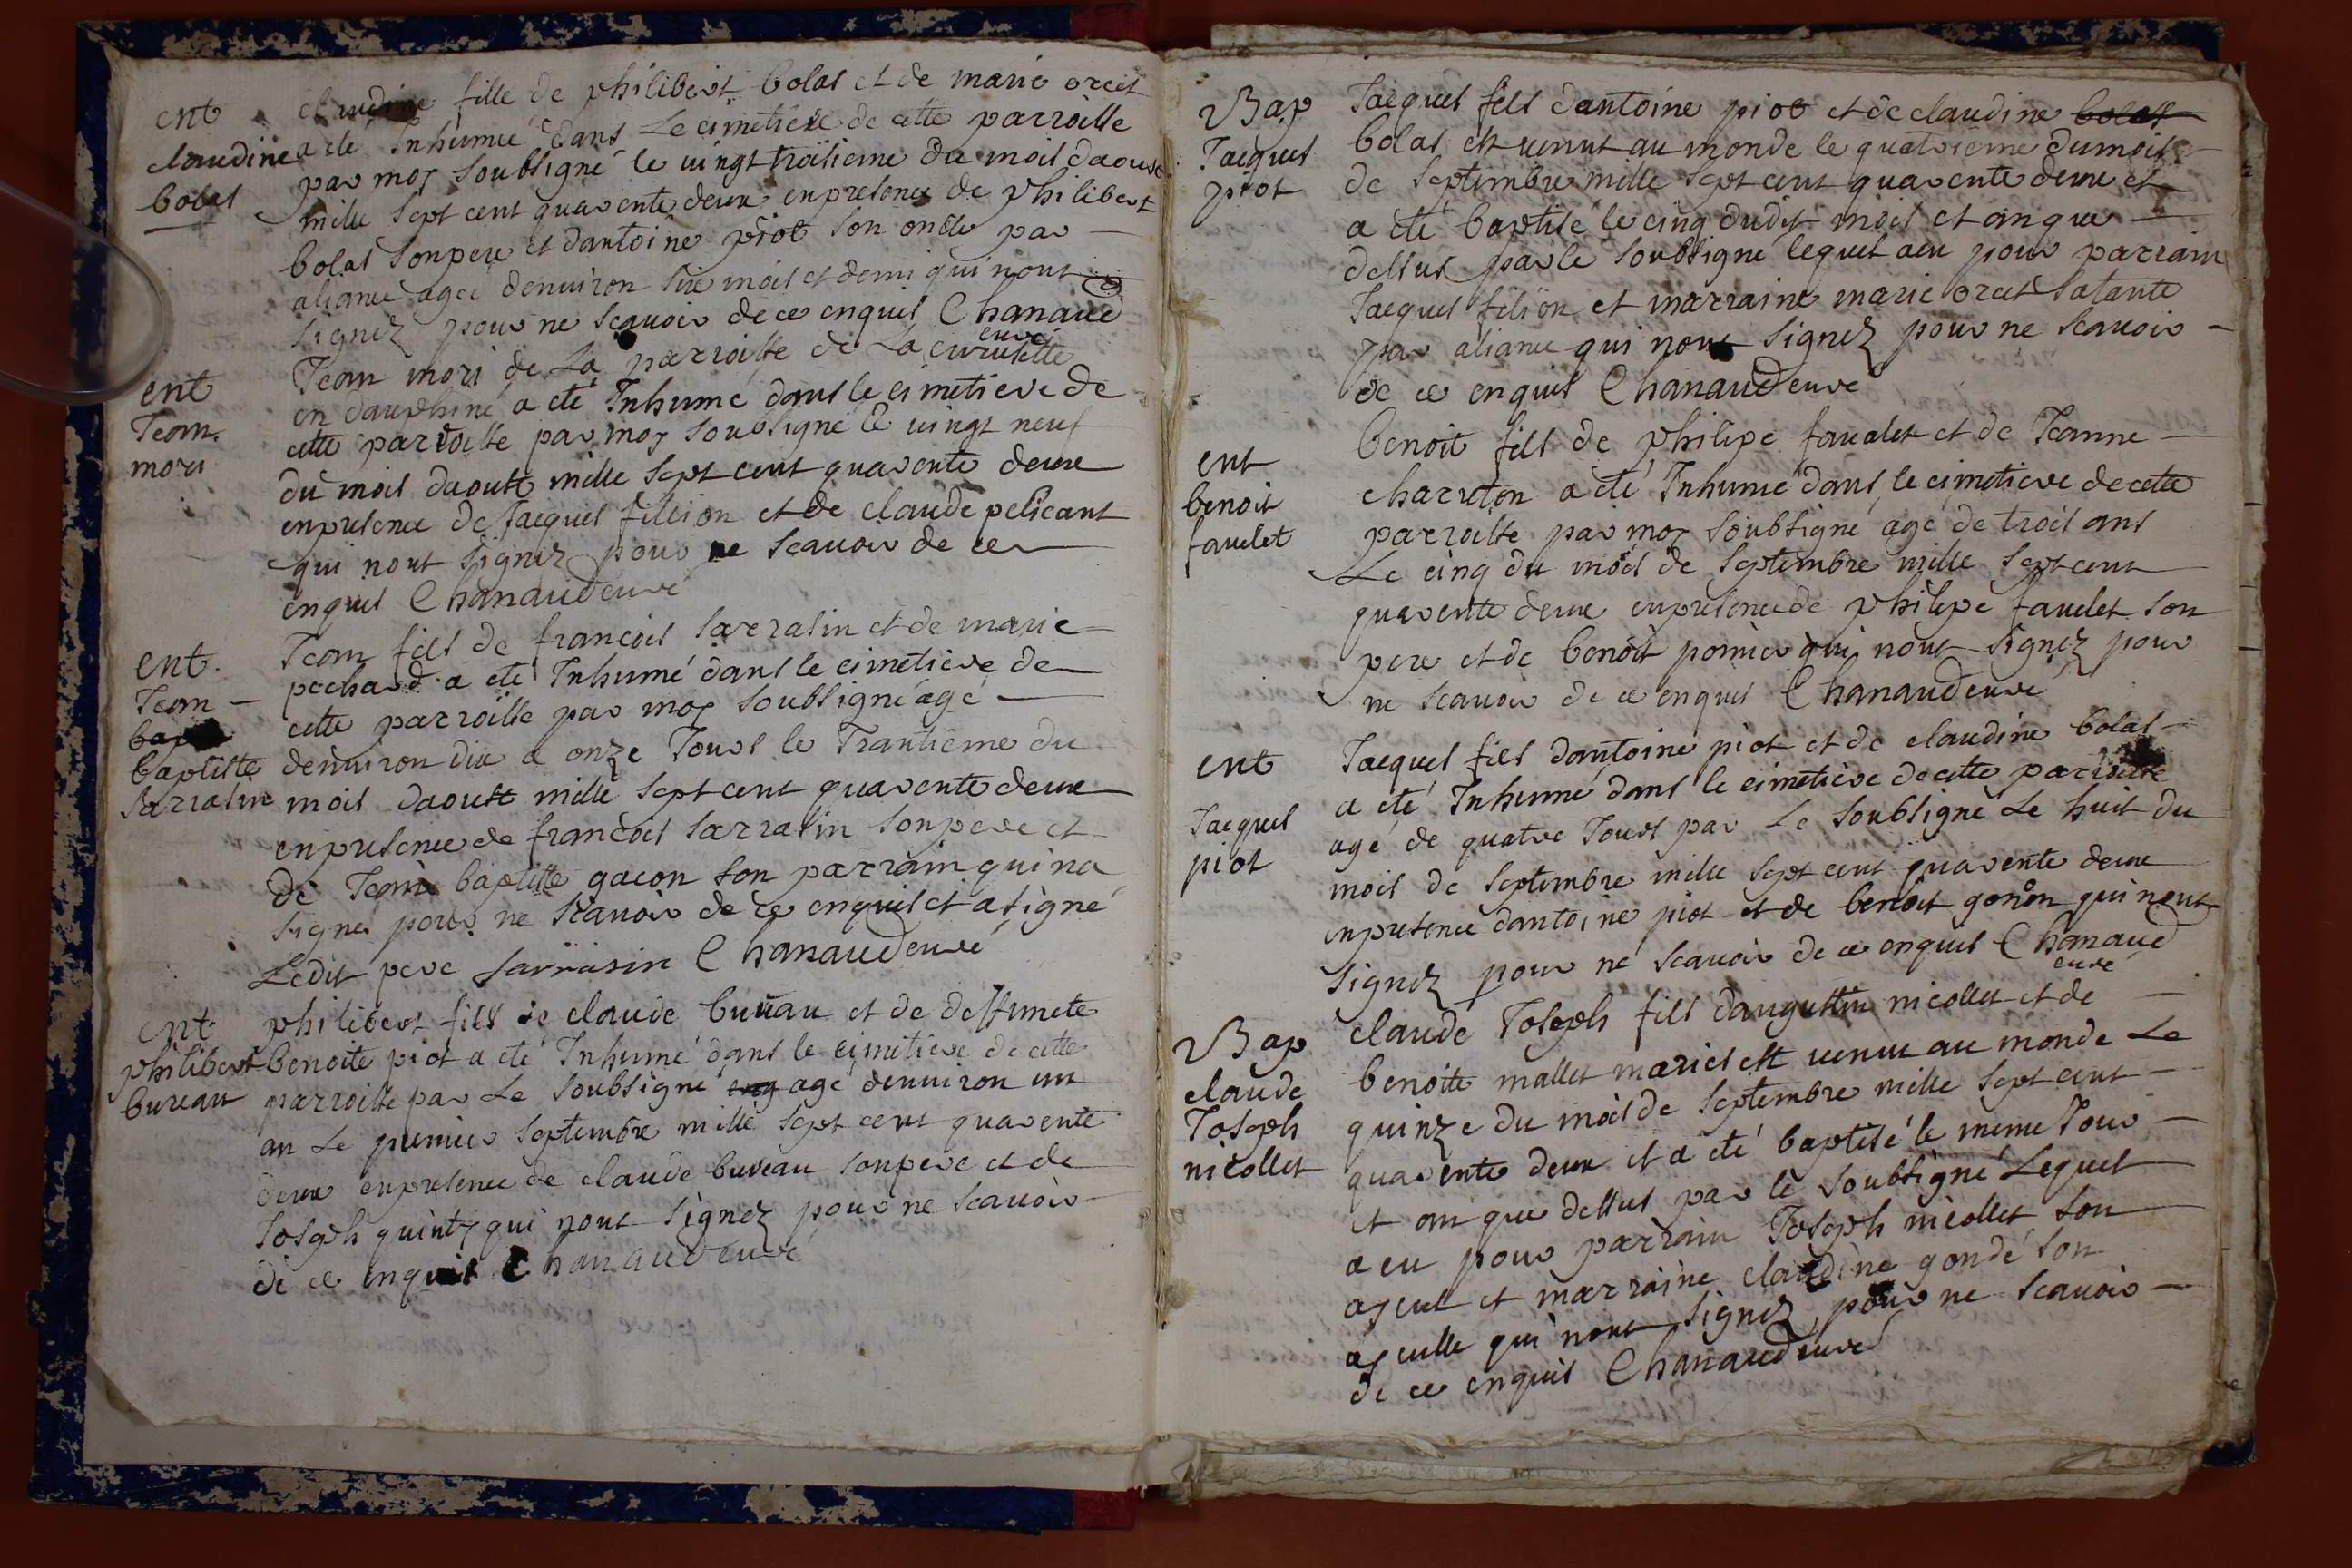 ent
claudine
bolas
claudine fille de philibert bolas et de marie orcet
a eté Inhumée dans Le cimetiere de cette parroisse
par moy soubsigné le vingt troisieme du mois daoust
mille sept cent quarente deux en presence de philibert
bolas son pere et dantoine piot son oncle par
aliance agée denuiron six mois et demi qui nont
signez pour ne scauoir de ce enquis Chanaud
curé
ent
Jean
mori
Jean mori de La parroisse de La
en dauphiné a eté Inhumé dans le cimetiere de
cette parroisse par moy soubsigné le vingt neuf
du mois daoust mille sept cent quarente deux
en presence de Jacques fillion et de claude pelicant
qui nont signez pour ne scauoir de ce
enquis Chanaud curé
ent.
Jean
baptiste
sarrasin
Jean fils de francois sarrasin et de marie
pechard a eté Inhumé dans le cimetiere de
cette parroisse par moy soubsigné agé
denuiron dix a onze Jours le Trantieme du
mois daoust mille sept cent quarente deux
en presence de francois sarrasin son pere et
de Jean baptiste gacon son parrain qui na
signé pour ne scauoir de ce enquis et a signé
Ledit pere sarrasin Chanaud curé
ent
philibert
bureau
philibert fils de claude bureau et de deffunete
benoite piot a eté Inhumé dans le cimetiere de cette
parroisse par Le soubsigné agé denuiron un
an Le premier septembre mille sept cent quarente
deux en presence de claude bureau son pere et de
Joseph quinty qui nont signez pour ne scauoir
de ce enquis Chanaud curé
Bap
Jacques
piot
Jacques fils dantoine piot et de claudine bolas
bolas est venut au monde le quatrieme du mois
de septembre mille sept cent quarente deux et
a eté baptisé le cinq dudit mois et an que
dessus par le soubsigné lequel a eu pour parrain
Jacques filion et marraine marie orcet sa tante
par aliance qui nont signez pour ne scauoir
de ce enquis Chanaud curé
ent
benoit
faulet
benoit fils de philipe faualet et de Jeanne
charreton a eté Inhumé dans le cimetiere de cette
parroisse par moy soubsigné agé de trois ans
Le cinq du mois de septembre mille sept cent
quarente deux en presence de philipe faulet son
pere et de benoit pomier qui nont signez pour
ne scauoir de ce enquis Chanaud curé
ent
Jacques
piot
Jacques fils dantoine piot et de claudine bolas
a eté Inhumé dans le cimetiere de cette parroisse
agé de quatre Jours par Le soubsigné Le huit du
mois de septembre mille sept cent quarente deux
en presence dantoine piot et de benoit gonon qui nont
signez pour ne scauoir de ce enquis Chanaud
curé
Bap
claude
Joseph
nicollet
claude Joseph fils daugustin nicollet et de
benoite mallet mariés est venu au monde Le
quinze du mois de septembre mille sept cent
quarente deux et a eté baptisé le meme Jour
et an que dessus par le soubsigné Lequel
a eu pour parrain Joseph nicollet son
ayeul et marraine claudine gondé son
ayeulle qui nont signez pour ne scauoir
de ce enquis Chanaud curé